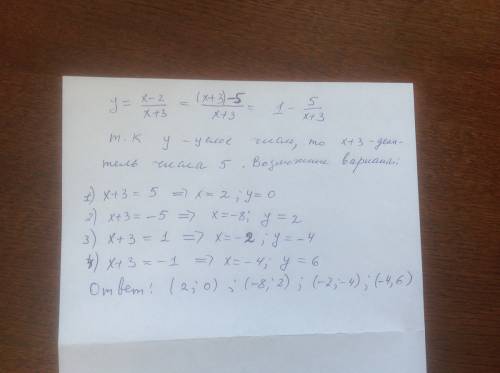 y = x-2/x+3 = (x+3)-5/x+3 = 1 - 5/x+3
т.к y - целое число, то x+3 - дели-
тель числа 5. Возможные варианты:
1) x+3 = 5 => x = 2; y=0
2) x+3 = -5 => x=-8; y = 2
3) x+3 = 1 => x=-2; y=-4
4) x+3 = -1 => x=-4; y = 6
Ответ: (2;0) ; (-8;2) ; (-2;-4) ; (-4,6)